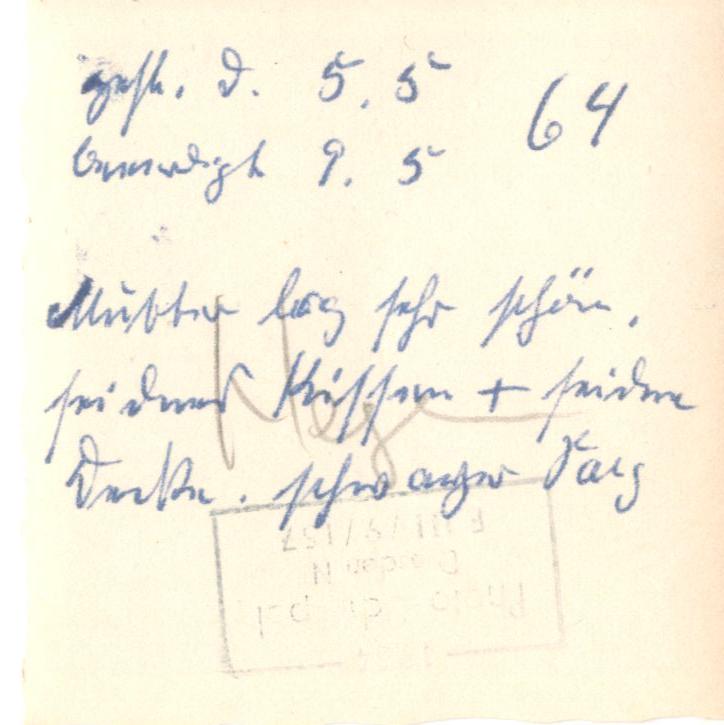 gest. d. 5.5 64
beerdigt 9.5
Mutter lag sehr schön,
seidenes Kissen + seidene
Decke. schwarzer Sarg
F III / 9 / 157
Dresden N
Photo